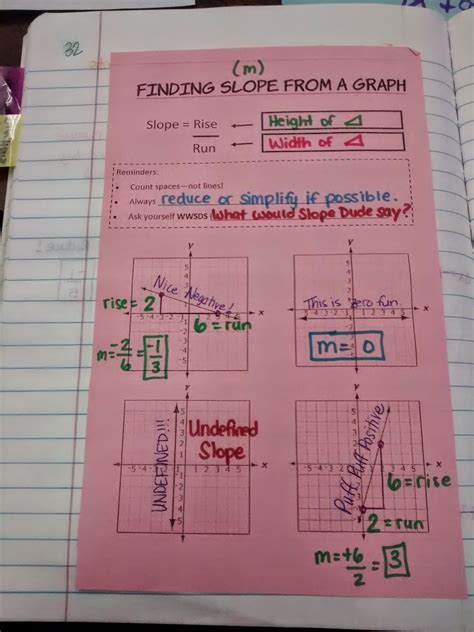 32
(m)
FINDING SLOPE FROM A GRAPH
Slope = Rise ← Height of △
Run ← Width of △
Reminders:
• Count spaces—not lines!
• Always reduce or simplify if possible.
• Ask yourself WWSDS (What would Slope Dude say?)
y
Nice Negative!
rise = 2
6 = run
x
m = -2/6 = -1/3
y
This is zero fun.
x
m = 0
y
UNDEFINED!!!
Undefined
Slope
x
y
Puff Puff Positive
x
6 = rise
2 = run
m = +6/2 = 3